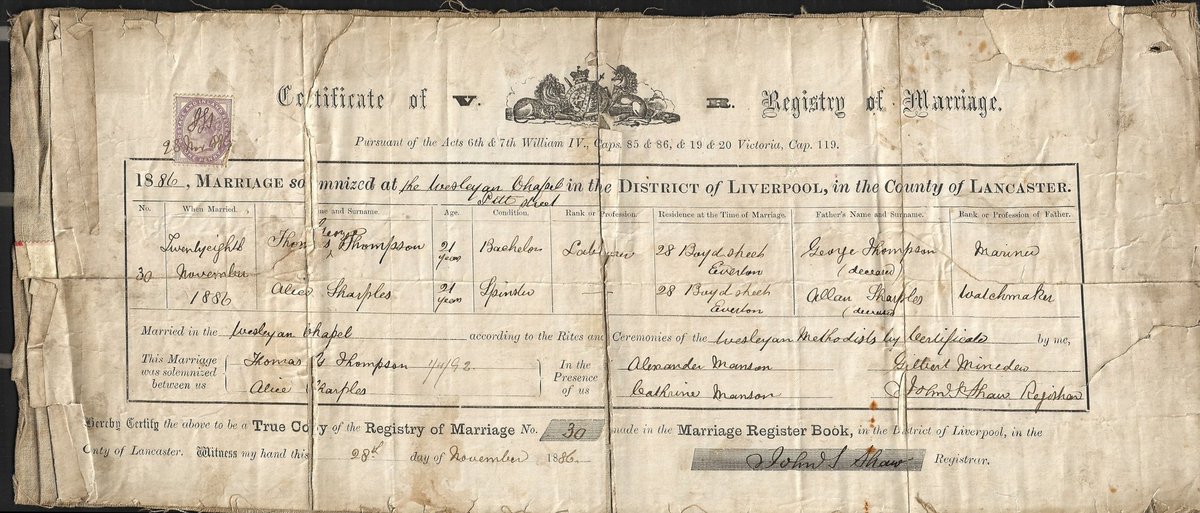 Certificate of V. R. Registry of Marriage.
Pursuant of the Acts 6th & 7th William IV., Caps. 85 & 86, & 19 & 20 Victoria, Cap. 119.
1886, MARRIAGE solemnized at the Wesleyan Chapel Pitt Street in the DISTRICT of LIVERPOOL, in the County of LANCASTER.
No. When Married. Name and Surname. Age. Condition. Rank or Profession. Residence at the Time of Marriage. Father's Name and Surname. Rank or Profession of Father.
30 Twentyeighth November 1886
Thomas George Thompson 21 years Bachelor 28 Boyd street Everton George Thompson (deceased) Mariner
Alice Sharples 21 years Spinster — 28 Boyd street Everton Allan Sharples (deceased) Watchmaker
Married in the Wesleyan Chapel according to the Rites and Ceremonies of the Wesleyan Methodists by Certificate by me,
This Marriage was solemnized between us
Thomas G Thompson
Alice Sharples
In the Presence of us
Alexander Manson
Cathrine Manson
Gilbert
John S Shaw Registrar
Hereby Certify the above to be a True Copy of the Registry of Marriage No. 30 made in the Marriage Register Book, in the District of Liverpool, in the
County of Lancaster. Witness my hand this 28th day of November 1886. John S Shaw Registrar.